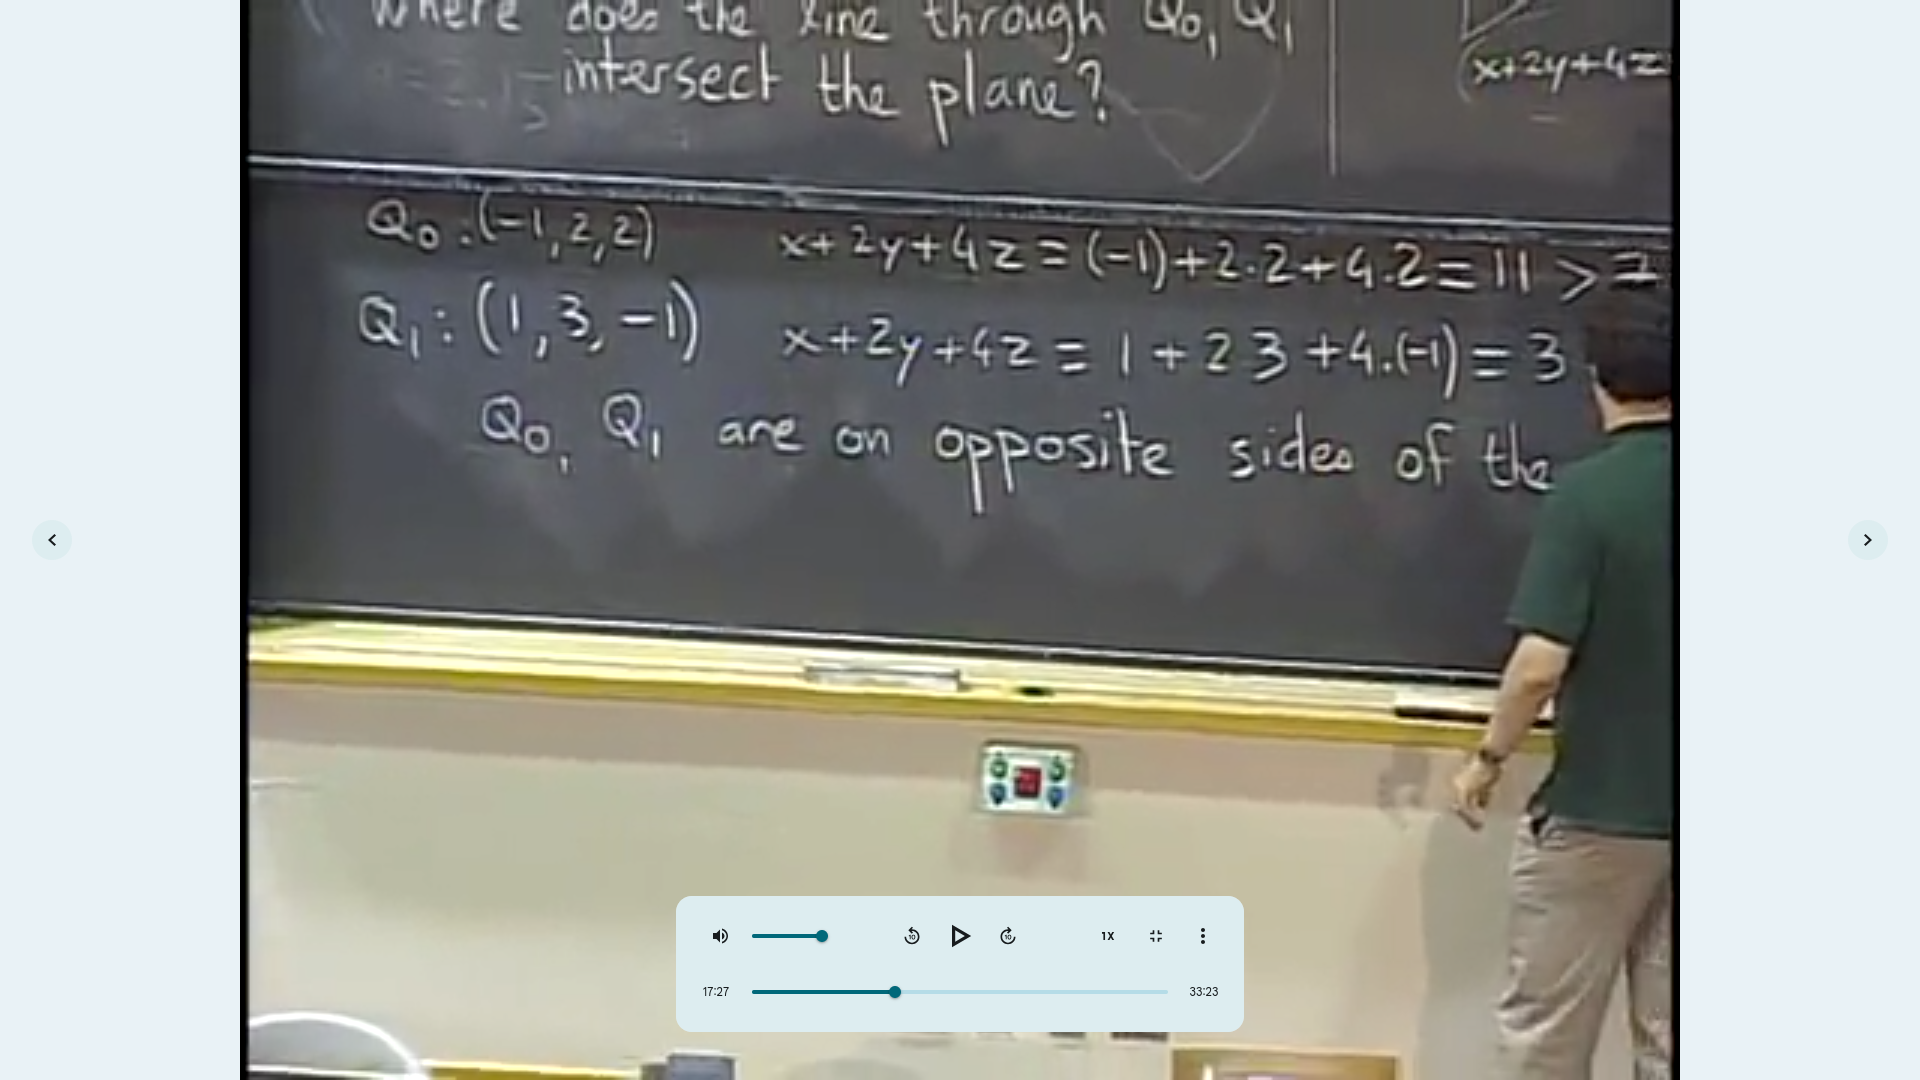 where does the line through Q0, Q1
intersect the plane?
x+2y+4z
Q0:(-1,2,2) x+2y+4z=(-1)+2·2+4·2=11>7
Q1:(1,3,-1) x+2y+4z=1+2 3+4·(-1)=3
Q0, Q1 are on opposite sides of the
1X
17:27 33:23